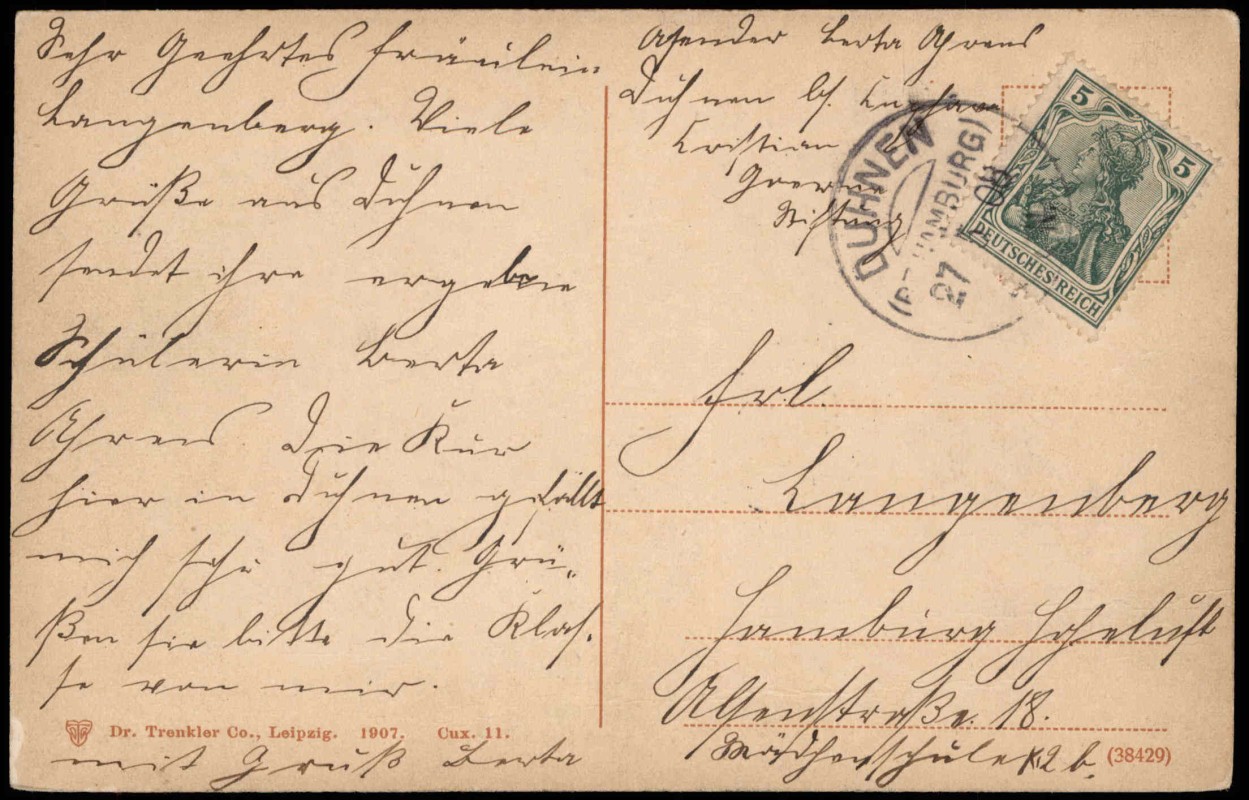 Sehr Geehrtes Fräulein
Langenberg. Viele
Grüße aus Duhnen
sendet ihre ergebene
Schülerin Berta
Ahrens. Die Kur
hier in Duhnen gefällt
mich sehr gut. Grü-
ßen sie bitte die Klas-
se von mir.
mit Gruß Berta
Dr. Trenkler Co., Leipzig. 1907. Cux. 11.
Absender Berta Ahrens
Duhnen b/. Cuxhaven
Cristian
Stiftung
DUHNEN
HAMBURG)
27
08
5
5
DEUTSCHES REICH
Frl.
Langenberg
Hamburg Hoheluft
18.
Mädchenschule 2 b.
(38429)